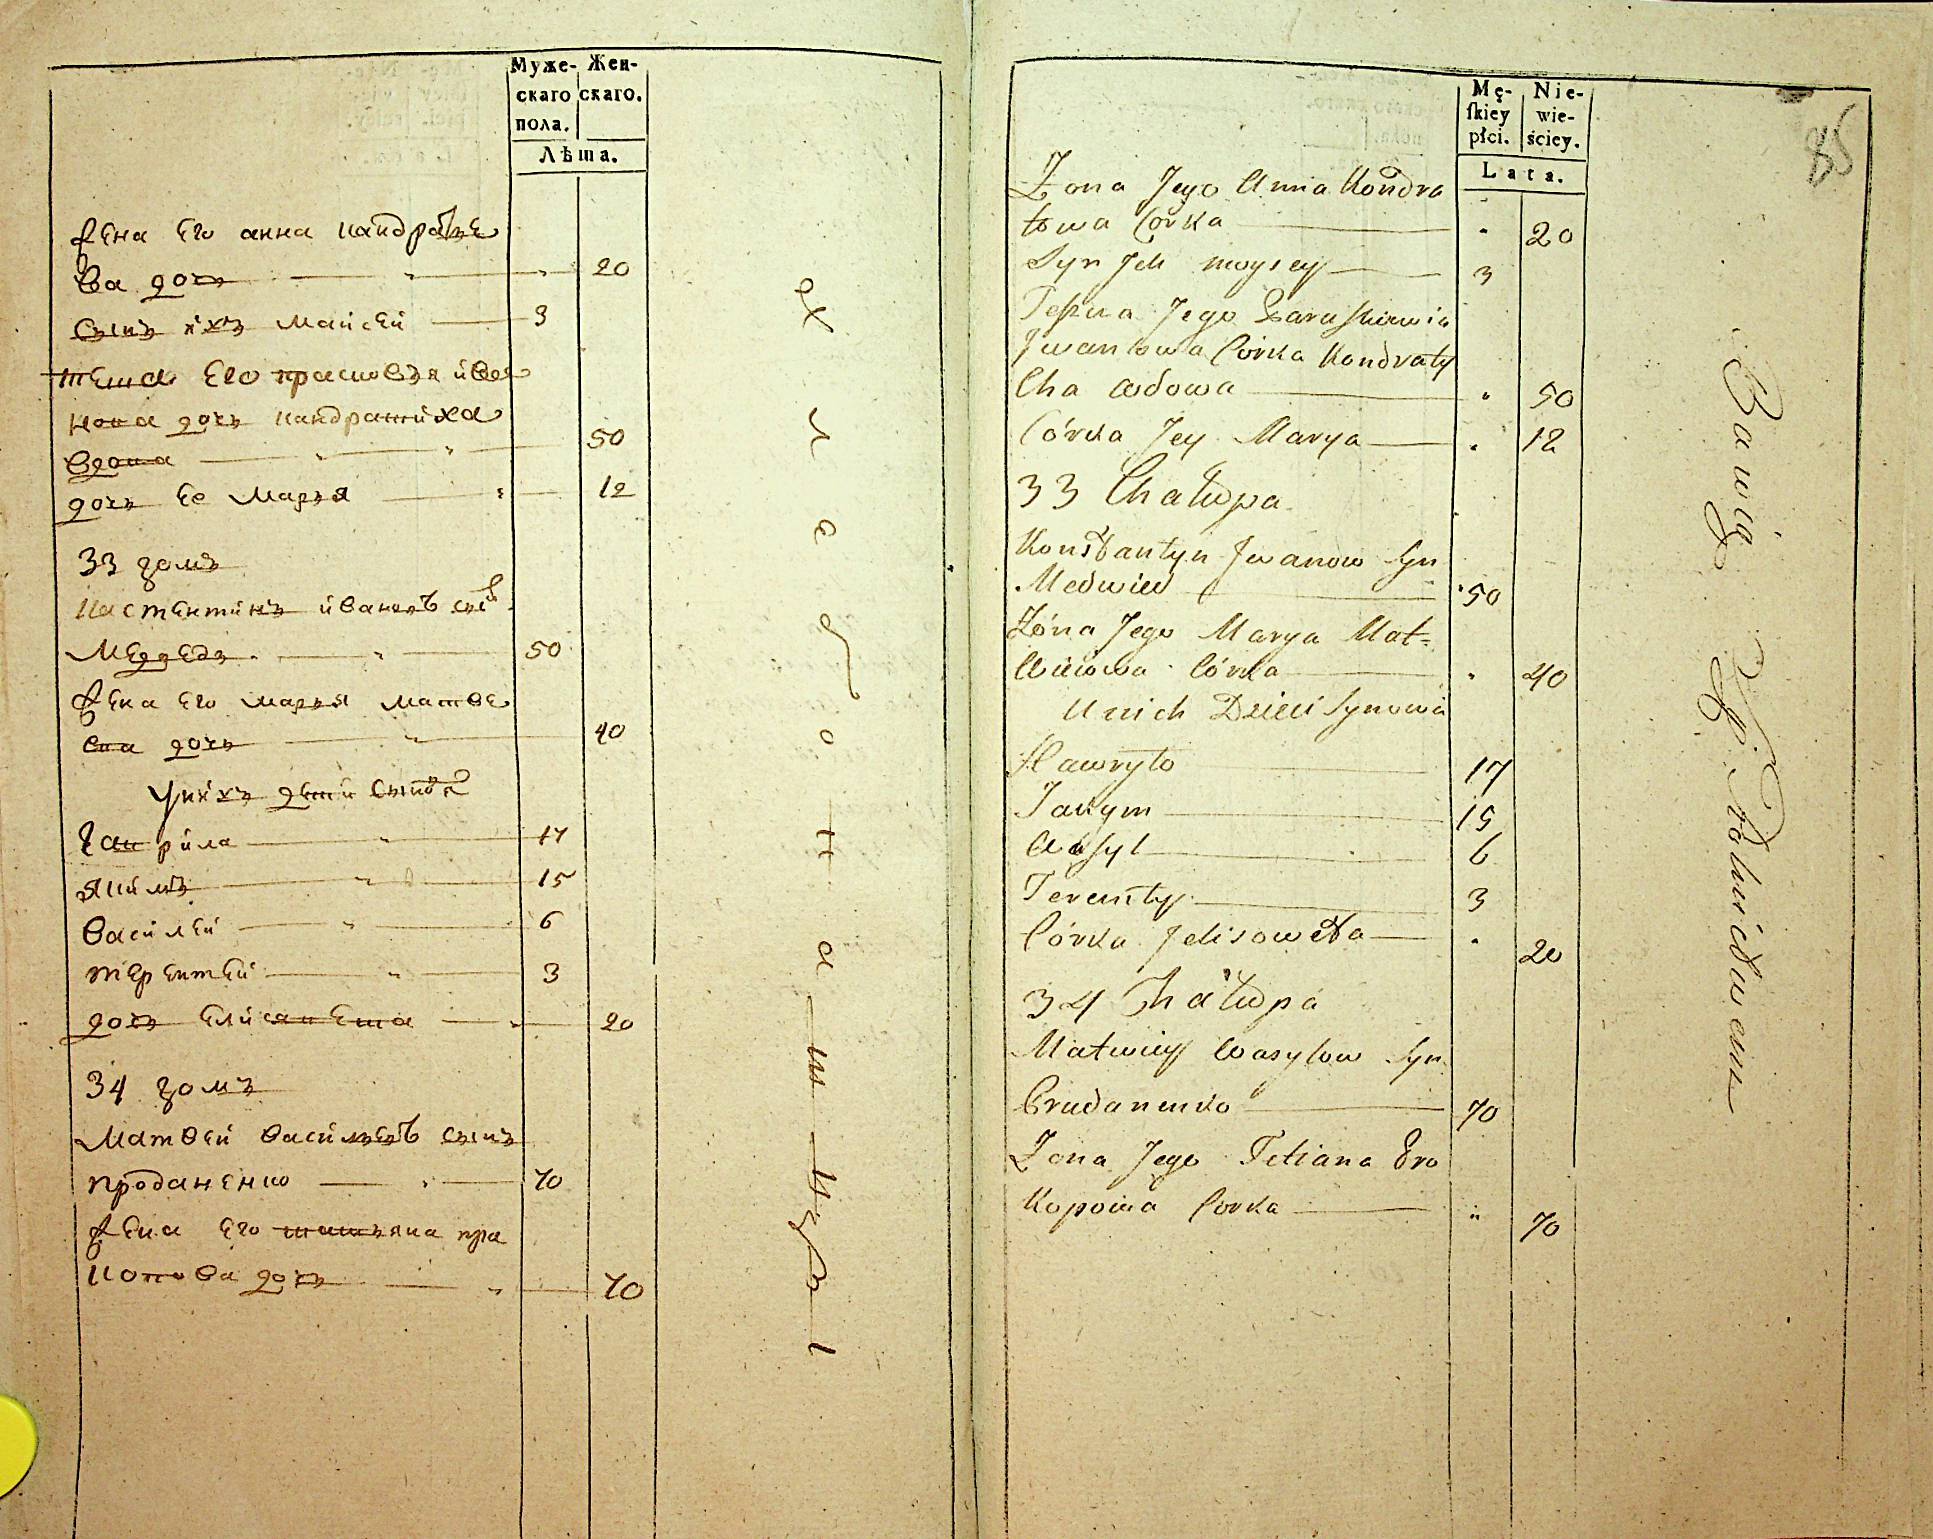 Муже-
скаго
пола.
Жен-
скаго.
Лѣта.
жена его анна кандратье
ва дочь 20
сынъ ихъ маисей 3
теща его прасковъя ива
нова дочь кандратиха
вдова 50
дочь ее маръя 12
33 домъ
кастентинъ ивановъ сынъ
медведь 50
жена его маръя матве
ева дочь 40
у нихъ дети сыновя
гаврила 17
якимъ 15
василей 6
терентей 3
дочь елисавета 20
34 домъ
матвей василъевъ сынъ
проданенко 70
жена его татьяна пра
копова дочь 70
Mę-
ſkiey
płci.
Nie-
wie-
ściey.
Lata.
85
Zona Jego Anna Kondra
towa Corka 20
Syn Jch moysey 3
Teszcza Jego Paraskiewia
Jwanowa Córka Kondraty
Cha wdowa 50
Córka Jey Marya 12
33 Chałupa
Konstantyn Jwanow Syn
Medwied 50
Żona Jego Marya Mat=
wiiowa Córka 40
U nich Dzieci Synowia
Hawryło 17
Jakym 15
Wasyl 6
Terenty 3
Córka Jelisaweta 20
34 Chałupa
Matwiey Wasylow Syn
Prudanenko 70
Zona Jego Tetiana Pro
kopowa Corka 70